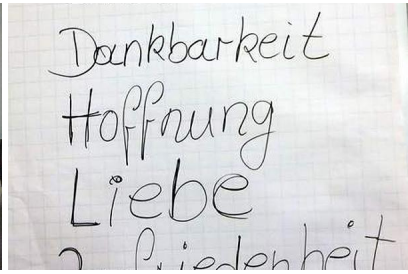 Dankbarkeit
Hoffnung
Liebe
Zufriedenheit